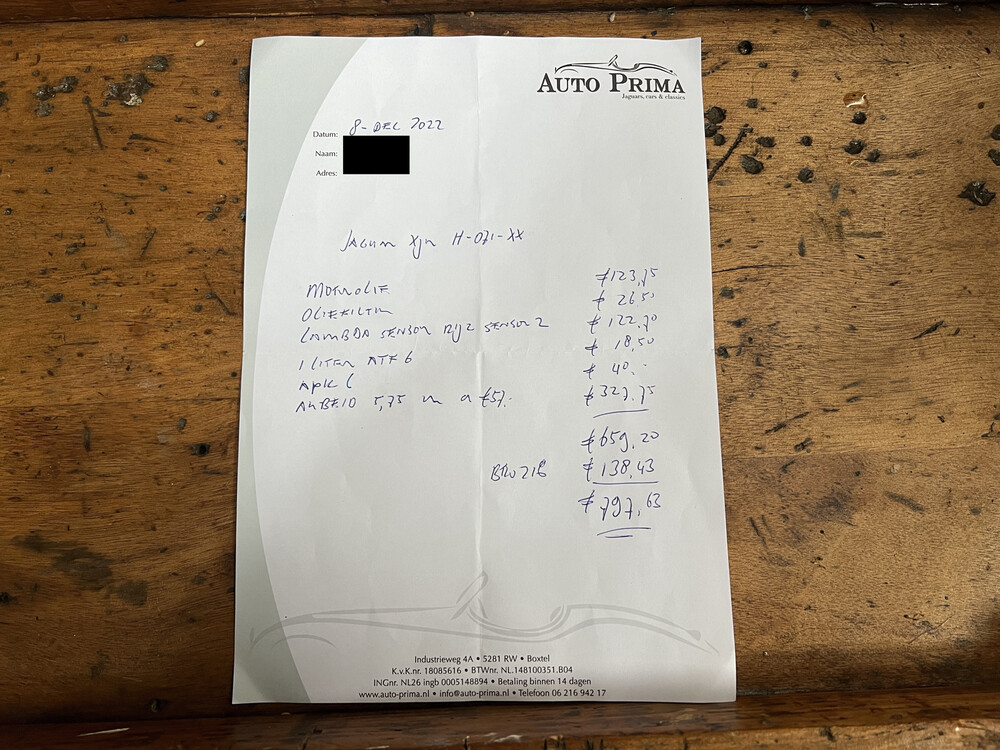 AUTO PRIMA
Jaguars, cars & classics
Datum: 8-DEC 2022
Naam:
Adres:
JAGUAR XJR H-071-XX
MOTOROLIE €123,75
OLIEFILTER € 26,50
LAMBDA SENSOR RIJ 2 SENSOR 2 € 122,70
1 LITER ATF 6 € 18,50
APK € 40,-
ARBEID 5,75 UUR A €57,- € 327,75
€659,20
BTW 21% € 138,43
€ 797,63
Industrieweg 4A • 5281 RW • Boxtel
K.v.K.nr. 18085616 • BTWnr. NL.148100351.B04
INGnr. NL26 ingb 0005148894 • Betaling binnen 14 dagen
www.auto-prima.nl • info@auto-prima.nl • Telefoon 06 216 942 17